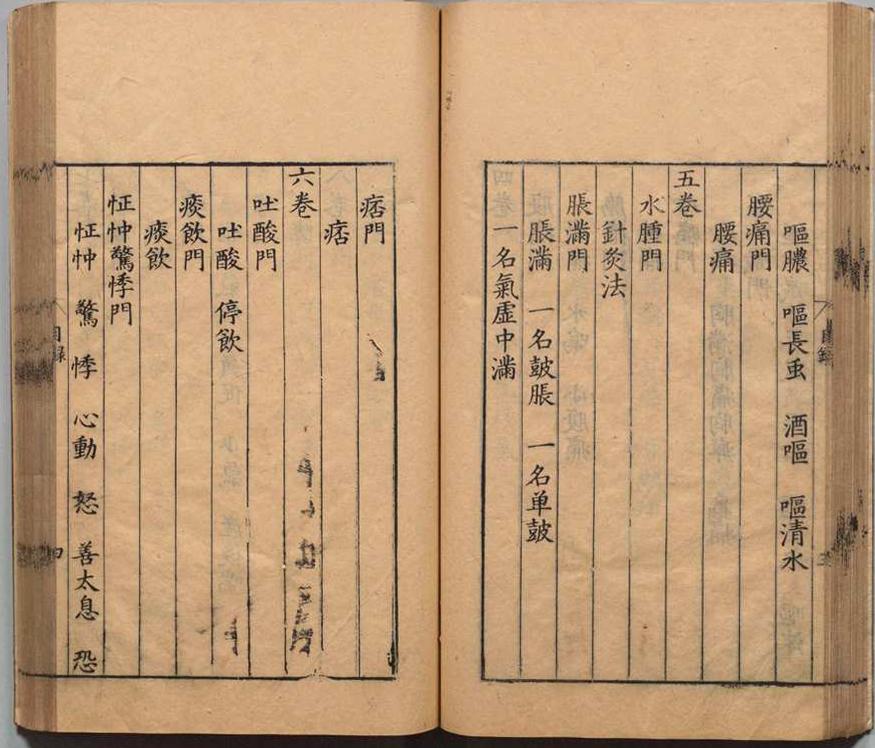 嘔膿 嘔長䖝 酒嘔 嘔清水
腰痛門
腰痛
五卷
水腫門
針灸法
脹滿門
脹滿 一名皷脹 一名单皷
一名氣虛中滿
目錄
痞門
痞
六卷
吐酸門
吐酸 停飲
痰飲門
痰飲
怔忡驚悸門
怔忡 驚 悸 心動 怒 善太息 恐
目錄
四